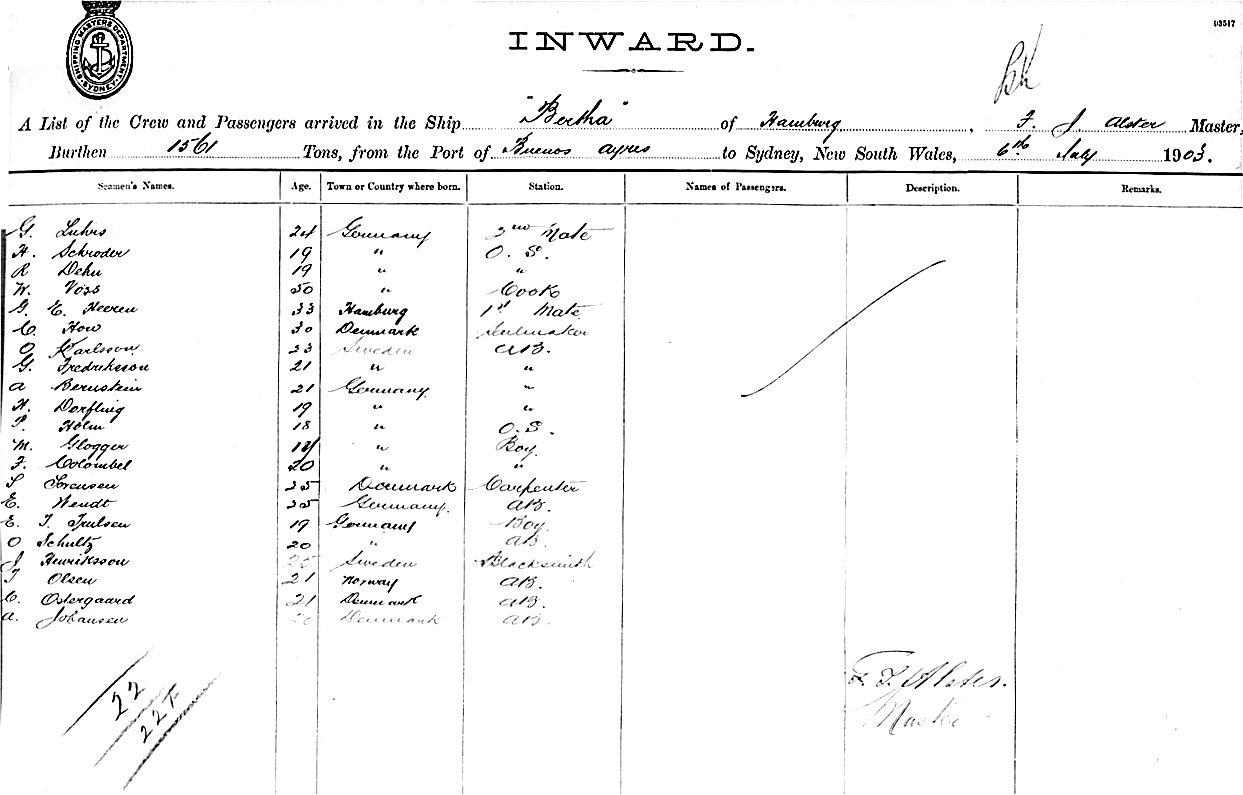 SHIPPING MASTERS DEPARTMENT SYDNEY
03517
INWARD.
A List of the Crew and Passengers arrived in the Ship "Bertha" of Hamburg, F. J. Alster Master,
Burthen 1561 Tons, from the Port of Buenos Ayres to Sydney, New South Wales, 6th July 1903.
Seamen's Names. Age. Town or Country where born. Station. Names of Passengers. Description. Remarks.
G. Luhrs 24 Germany 2nd Mate
H. Schroder 19 " O. S.
R Dehn 19 " "
W. Voss 50 " Cook
G. E. Heeren 33 Hamburg 1st Mate
C. How 30 Denmark Sailmaker
O Karlsson 23 Sweden AB.
G. Fredriksson 21 " "
A Bernstein 21 Germany "
H. Dorfling 19 " "
P. Holm 18 " O. S.
M. Glogger 18 " Boy
F. Colombel 20 " "
S Sorensen 25 Denmark Carpenter
E. Wendt 25 Germany. AB.
E. T. 19 Germany Boy
O Schultz 20 " AB.
J Henriksson 25 Sweden Blacksmith
T Olsen 21 Norway AB.
C. Ostergaard 21 Denmark AB.
A. Johansen 20 Denmark AB.
22
F. J. Alster.
Master